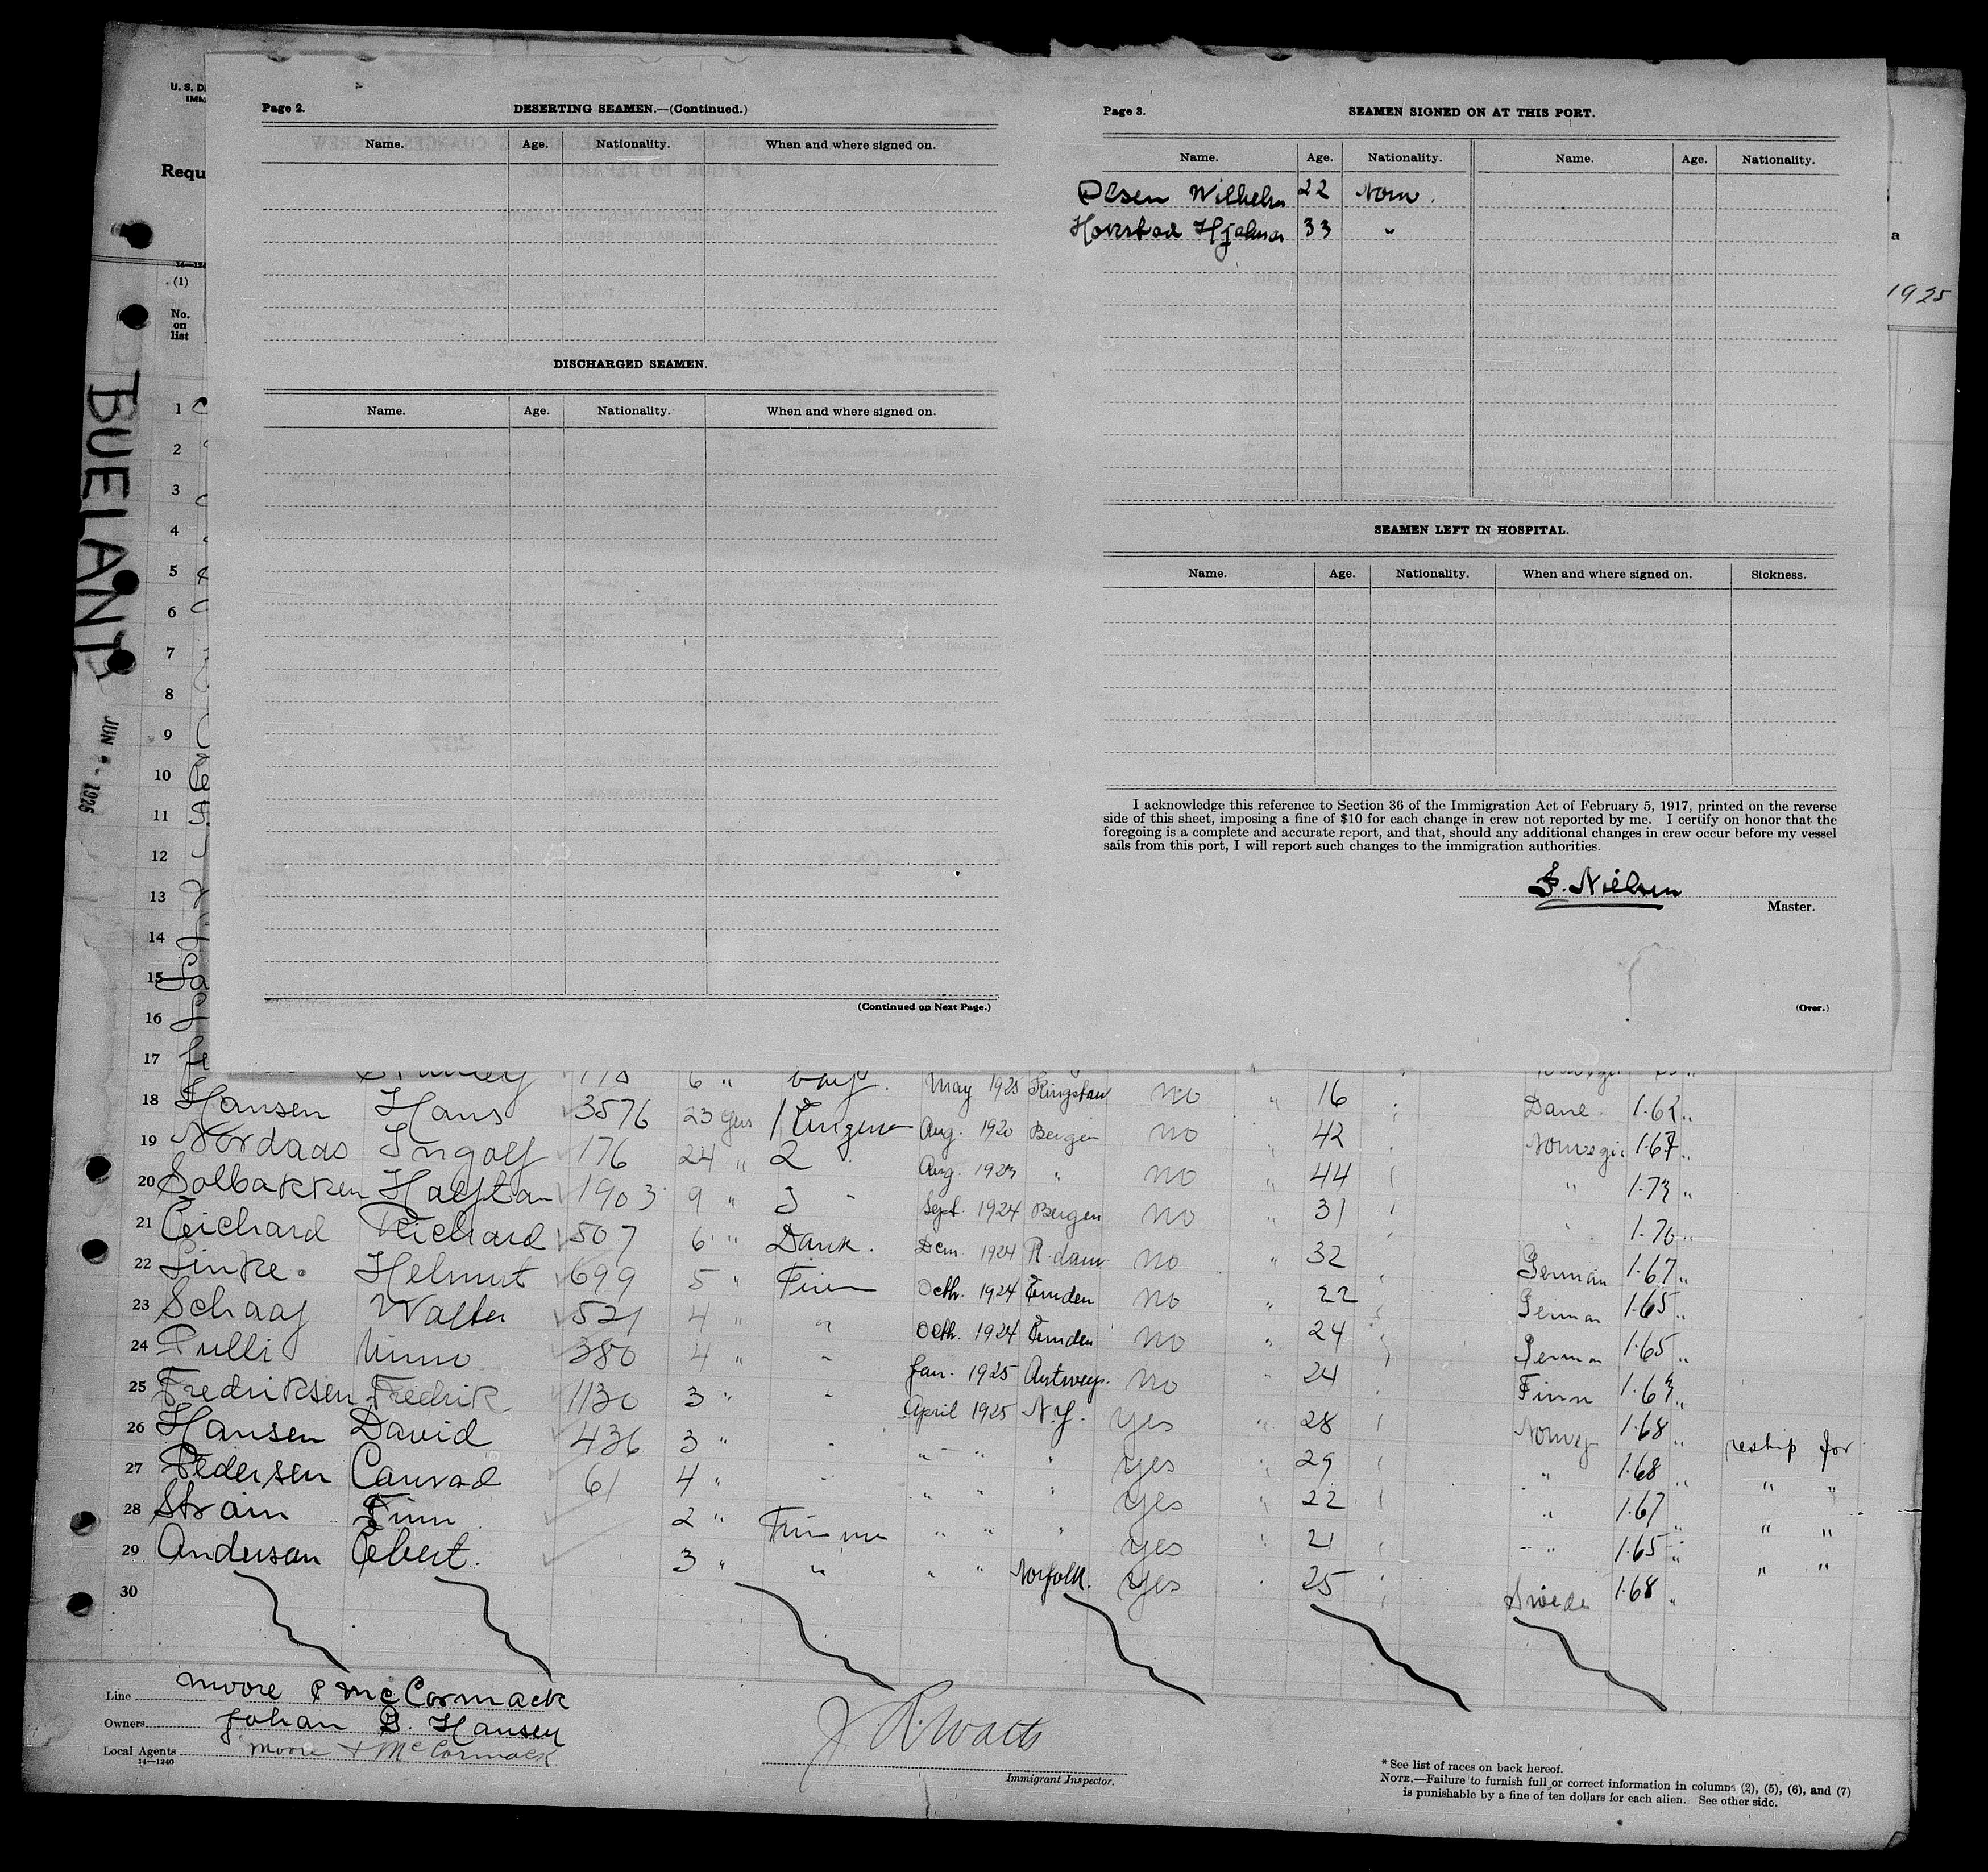 U. S. D
IMM
Requ
(1)
No.
on
list
BUELAND
JUN 9 - 1925
a
1925
Page 2.
DESERTING SEAMEN.—(Continued.)
Name. Age. Nationality. When and where signed on.
DISCHARGED SEAMEN.
Name. Age. Nationality. When and where signed on.
(Continued on Next Page.)
Page 3.
SEAMEN SIGNED ON AT THIS PORT.
Name. Age. Nationality. Name. Age. Nationality.
Olsen Wilhelm 22 Norw.
Hjalmar 33 "
SEAMEN LEFT IN HOSPITAL.
Name. Age. Nationality. When and where signed on. Sickness.
I acknowledge this reference to Section 36 of the Immigration Act of February 5, 1917, printed on the reverse
side of this sheet, imposing a fine of $10 for each change in crew not reported by me. I certify on honor that the
foregoing is a complete and accurate report, and that, should any additional changes in crew occur before my vessel
sails from this port, I will report such changes to the immigration authorities.
Nielsen
Master.
(Over.)
1
2
3
4
5
6
7
8
9
10
11
12
13
14
15
16
17 6 " May 1925 Kingston no " 16 Dane 1.62 "
18 Hansen Hans 3576 23 yrs 1 Engineer Aug. 1920 Bergen no 42 Norwegi 1.67 "
19 Nordaas Ingolf 176 24 " 2 " Aug. 1923 " no " 44 " 1.73 "
20 Solbakken Halftan 1903 9 " 3 " Sept. 1924 Bergen no 31 " 1.70 "
21 Richard 507 6 " Dank. Dem. 1924 R.dam no " 32 German 1.67 "
22 Linke Helmut 699 5 " Firm Octb. 1924 Emden no " 22 German 1.65 "
23 Schaaf Walter 521 4 " " Octb. 1924 Emden no " 24 German 1.65 "
24 Pulli 380 4 " " Jan. 1925 Antwerp. no " 24 Finn 1.63 "
25 Fredriksen Fredrik 1130 3 " " April 1925 N.Y. yes " 28 Norweg 1.68 " reship for
26 Hansen David 436 3 " " " " " yes " 29 " 1.68 " " "
27 Pedersen Conrad 61 4 " " " " " yes " 22 " 1.67 " " "
28 Strain Finn 2 " " " " yes 21 " 1.65 " " "
29 Anderson 3 " " " " Norfolk. yes " 25 Swede 1.68 "
30
Line Moore & McCormack
Owners Johan G. Hansen
Local Agents Moore & McCormack
14—1240
J R. Watts
Immigrant Inspector.
* See list of races on back hereof.
NOTE.—Failure to furnish full or correct information in columns (2), (5), (6), and (7)
is punishable by a fine of ten dollars for each alien. See other side.